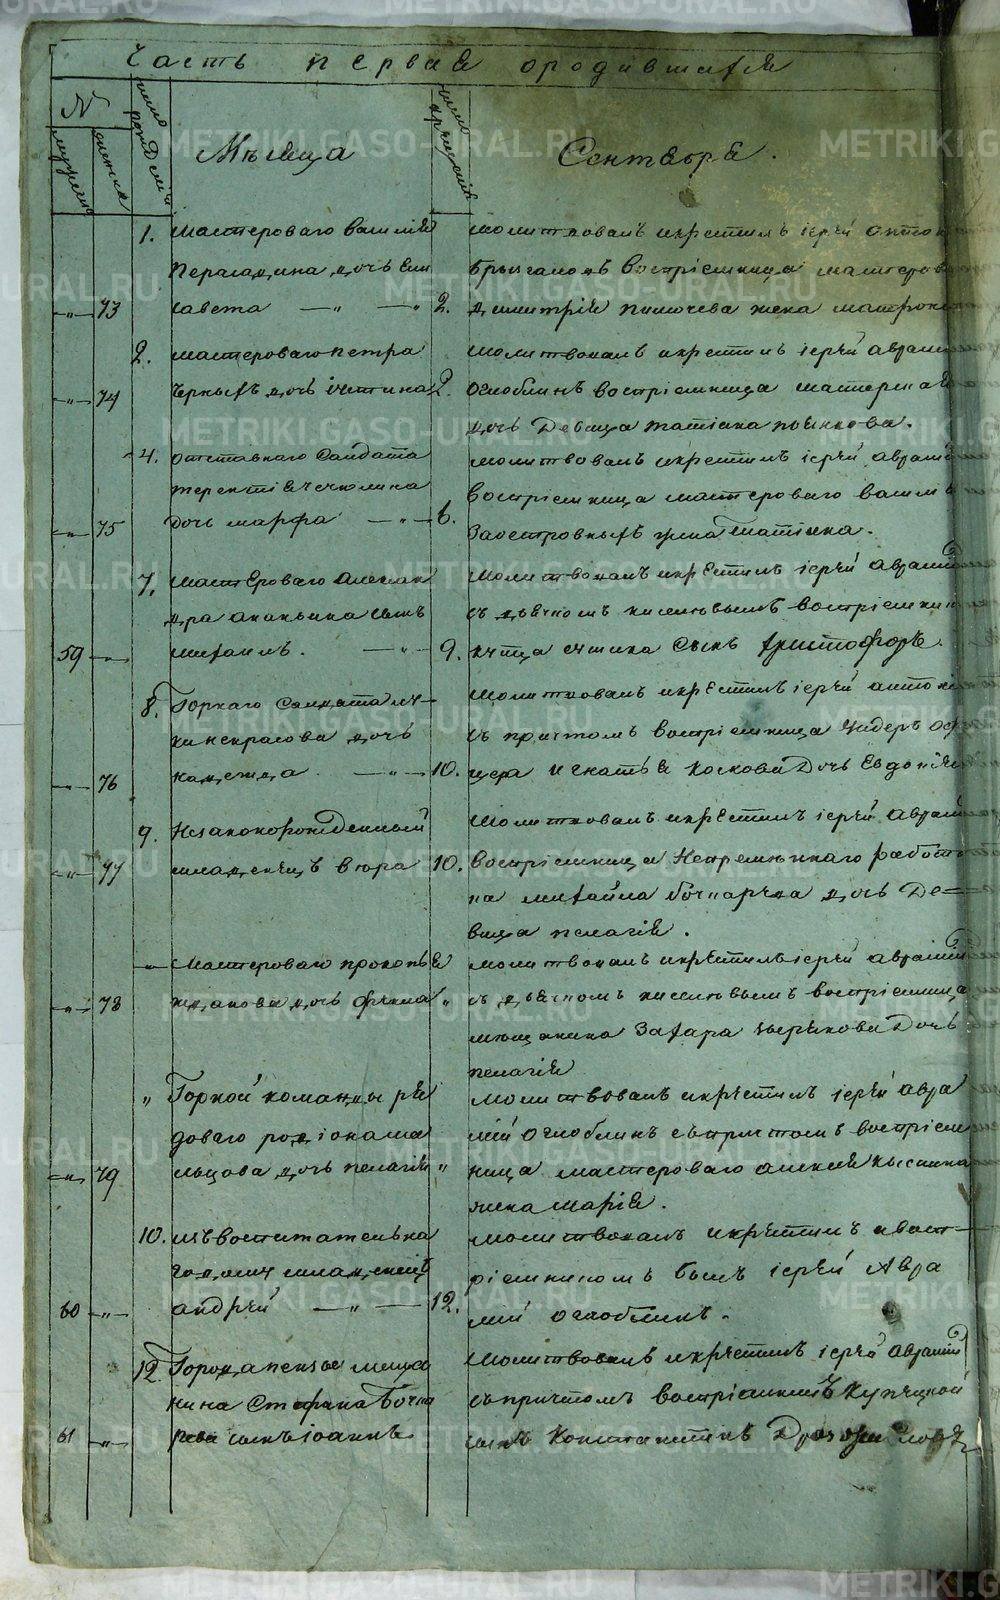 Часть первая ородившихся
№
мужеска
женска
число рожденія
Мѣсяца
число крещенія
Сентября.
1. мастероваго василія
дина дочь Ели
73 савета 2.
молитвовалъ икрестилъ іерей
востріемница мастеров
димитрія жена матрона
2. мастероваго петра
74 Черныхъ дочь 2.
молитвовалъ икрестилъ іерей аврамій
Оглоблинъ востріемница мастероваго
дочь Девица татіана
4. отставнаго Салдата
терентія
75 дочь марфа 6.
молитвовалъ икрестилъ іерей аврамій
востріемница мастероваго васил
Заостровныхъ жена татіана.
7. мастероваго алексан
дра ананьина сынъ
59 михаилъ. 9.
молитвовалъ икрестилъ іерей аврамій
съ дьячкомъ киселевымъ востріемник
купца сынъ христофоръ.
8. Горнаго Салдата лу-
ки некрасова дочь
76 надежда 10.
молитвовалъ икрестилъ іерей антоній
съ притчомъ востріемница Ундеръ оф
цера игнатья Коскова Дочь Евдокія
9. Незаконорожденный
77 младенецъ 10.
молитвовалъ икрестилъ іерей аврамій
востріемница Непремѣннаго работ
на михайла бочкарева дочь Де=
вица пелагія.
мастероваго прокопья
78 жданова дочь фекла "
молитвовалъ икрестилъ іерей аврамій
съ дьячкомъ киселевымъ востріемница
мещанина Захара Дочь
пелагія
" Горной команды ря
доваго родіона ма
79 льцова дочь пелагія "
молитвовалъ икрестилъ іерей авра
мій Оглоблинъ съпритчомъ востріем
ница мастероваго алексея
жена марія.
10. изъ воспитательна
го дому младенецъ
60 андрей 12.
молитвовалъ икрестилъ ивост-
ріемникомъ былъ іерей Авра
мій оглоблинъ.
12. Города пензы меща
нина Стефана Бочка
61 рева сынъ іоаннъ
молитвовалъ икрестилъ іерей аврамій
съпритчомъ востріемникъ Купецкой
сынъ Константинъ
METRIKI.GASO-URAL.RU